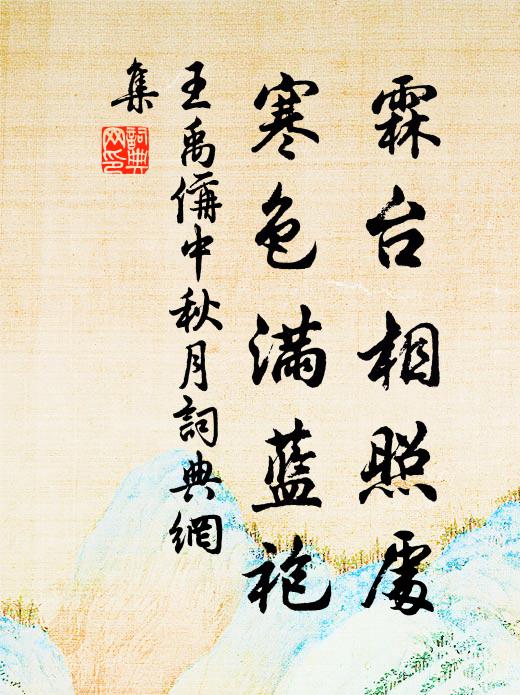 霖台相照處
寒色满藍袍
王禹偁中秋月詞典網
集
詞典
网印